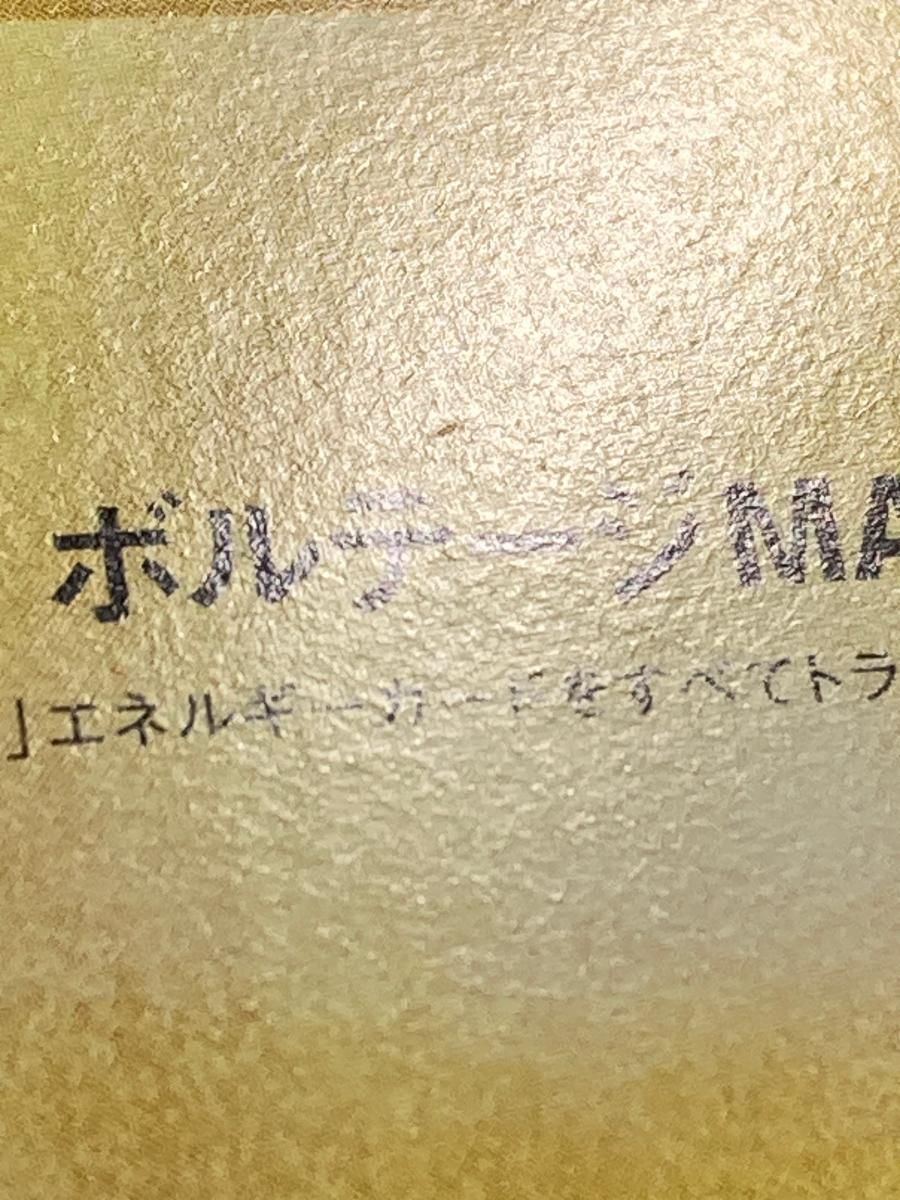 ボルテージMA
」エネルギーカードをすべてトラ